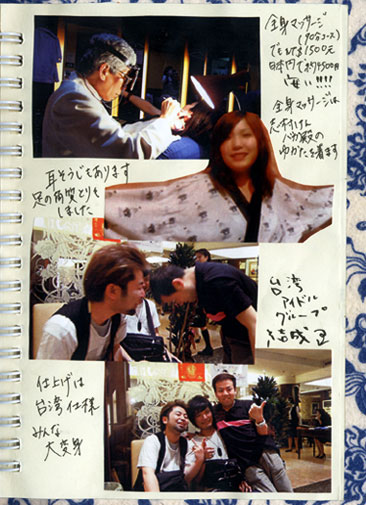 全身マッサージ
(90分コース)
でも$1500元
日本円で約4500円
安い!!!!
全身マッサージは
志村けん
バカ殿の
ゆかたを着ます
耳そうじもあります
足の角質とりも
しました
台湾
アイドル
グループ
結成
仕上げは
台湾仕様
みんな
大変身